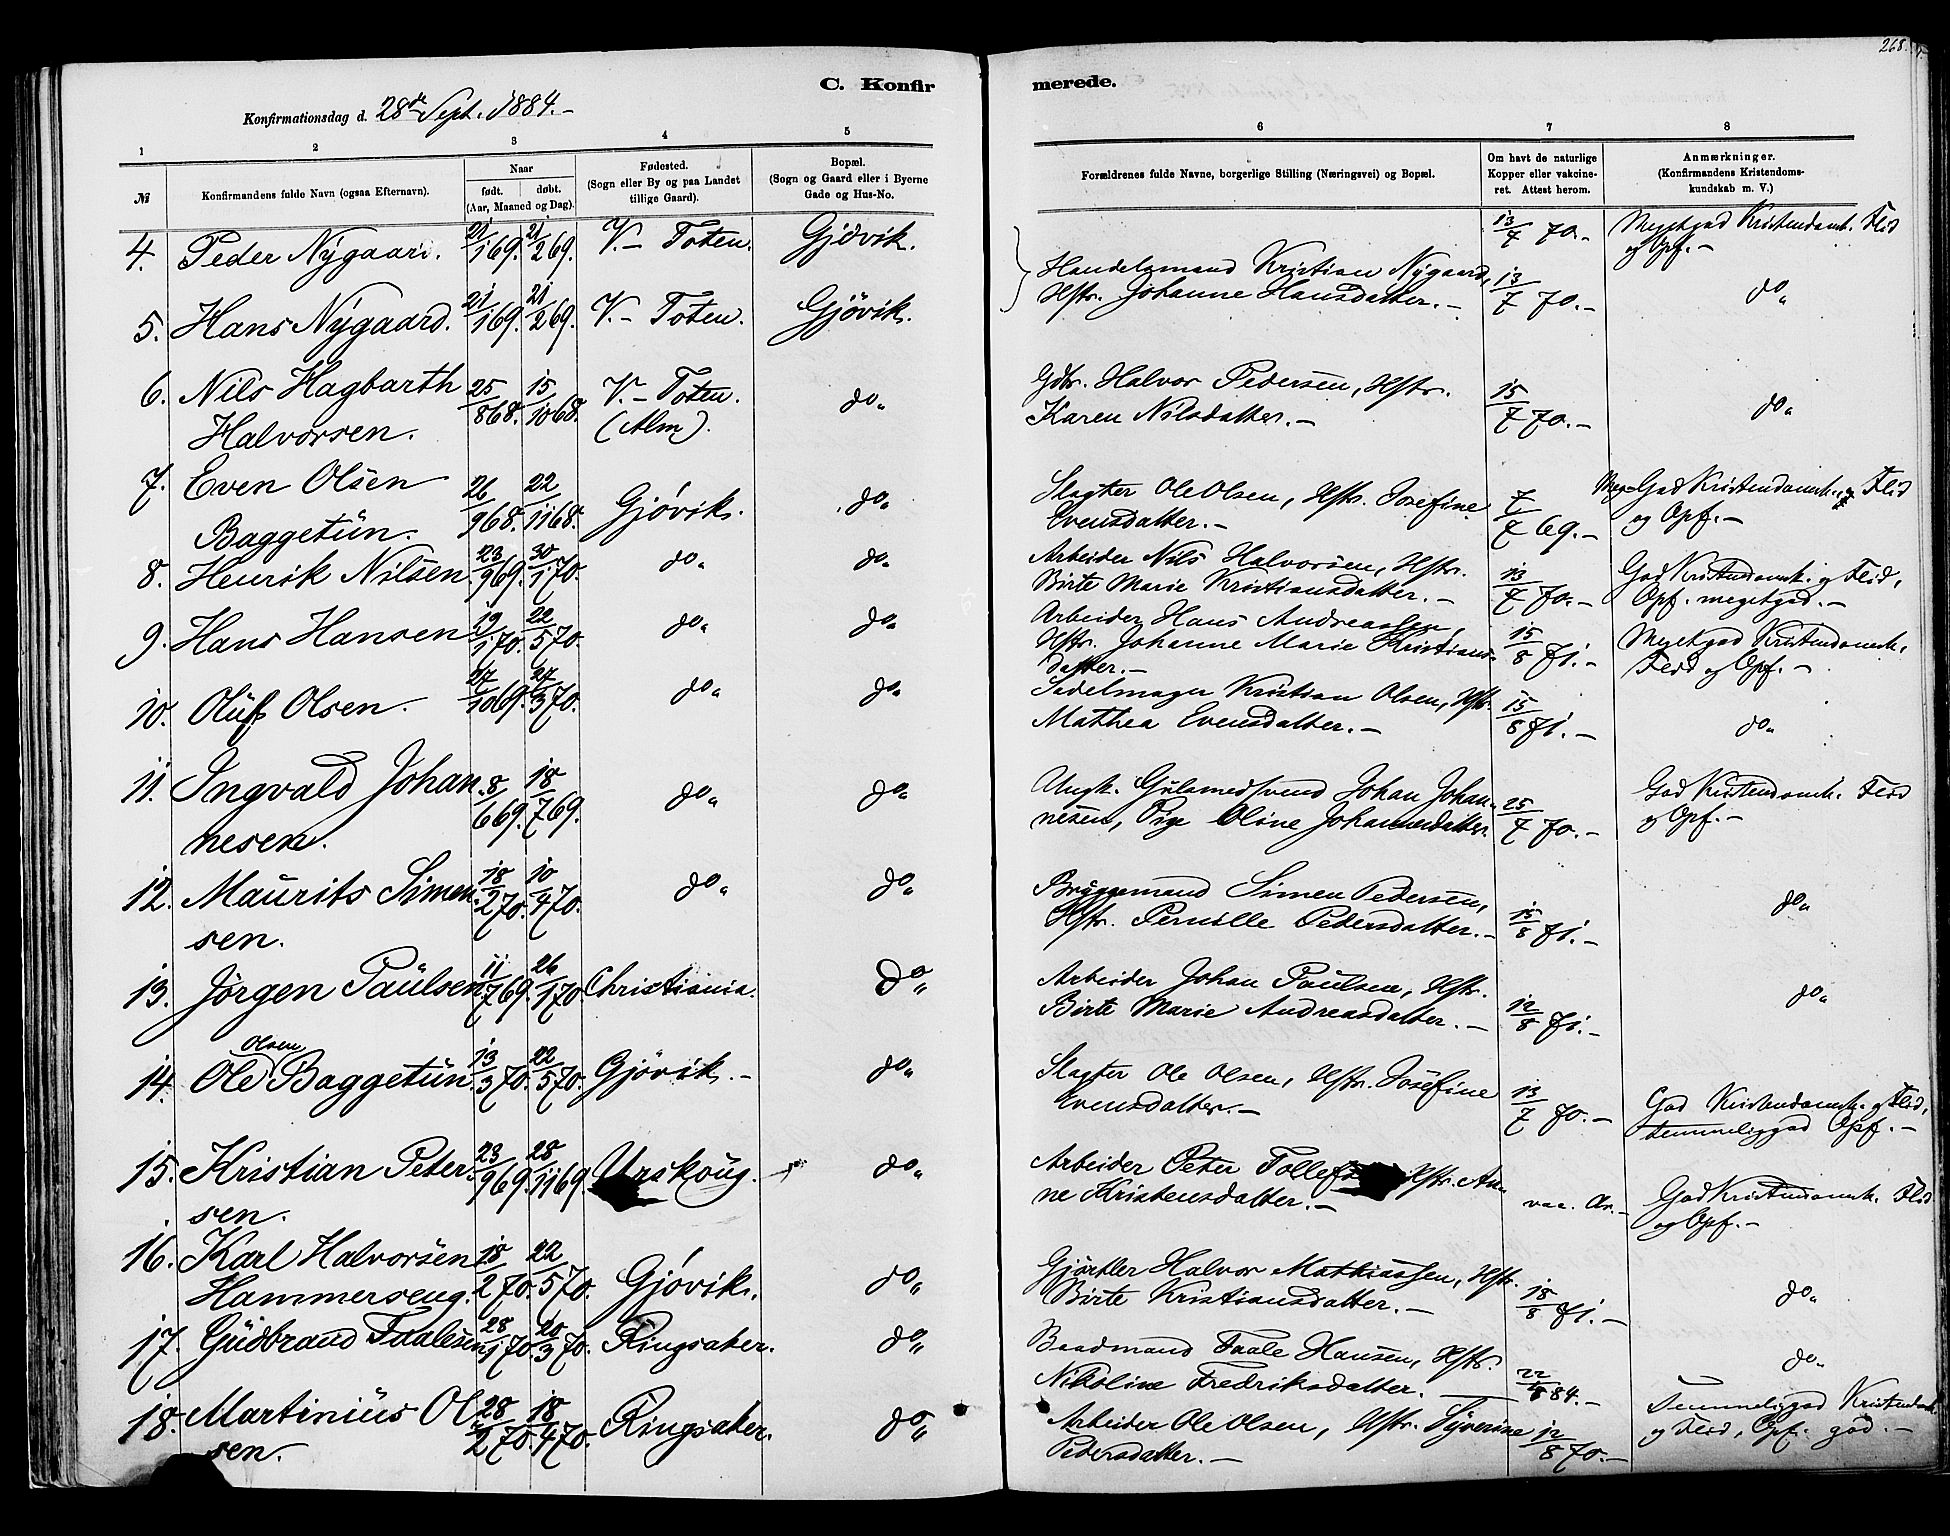 268.
C. Konfir
merede.
Konfirmationsdag d. 28de Sept. 1884.-
1 2 3 4 5 6 7 8
№ Konfirmandens fulde Navn (ogsaa Efternavn). Naar født. døbt. (Aar, Maaned og Dag). Fødested. (Sogn eller By og paa Landet tillige Gaard). Bopæl. (Sogn og Gaard eller i Byerne Gade og Hus-No. Forældrenes fulde Navne, borgerlige Stilling (Næringsvei) og Bopæl. Om havt de naturlige Kopper eller vakcineret. Attest herom. Anmærkninger. (Konfirmandens Kristendomskundskab m. V.)
4. Peder Nygaard. 21/1 69. 21/2 69. V.- Toten. Gjøvik. 13/7 70.- Megetgod Kristendomsk. Flid
og Opf.-
Handelsmand Kristian Nygaard,
Hstr. Johanne Hansdatter.-
5. Hans Nygaard. 21/1 69. 21/2 69. V.- Toten. Gjövik. 13/7 70.- do"
6. Nils Hagbarth 25/8 68. 15/10 68. V.- Toten. do" Gdbr. Halvor Pedersen, Hstr. 15/7 70.- do"
Halvorsen. (Alm). Karen Nilsdatter.-
7. Even Olsen 26/9 68. 22/11 68. Gjøvik. do" Slagter Ole Olsen, Hstr. Josefine 7/7 69.- Meg. God Kristendomsk. og Flid
Baggetun. Evensdatter.- og Opf.-
8. Henrik Nilsen. 23/9 69. 30/1 70. do" do" Arbeider Nils Halvorsen, Hstr. 13/7 70.- God Kristendomsk. og Flid,
Birte Marie Kristiansdatter.- Opf. megetgod.-
9. Hans Hansen 19/1 70. 22/5 70. do" do" Arbeider Hans Andreassen, 15/8 71.- Megetgod Kristendomsk.
Hstr. Johanne Marie Kristians- Flid og Opf.-
datter.-
10. Oluf Olsen. 27/10 69. 27/3 70. do" do" Sadelmager Kristian Olsen, Hstr. 15/8 71.- do"
Mathea Evensdatter.-
11. Ingvald Johan- 8/6 69. 18/7 69. do" do" Ungk. Guldsmedsvend Johan Johan- 25/7 70.- God Kristendomsk. Flid
nesen. nesen, Pige Oline Johannesdatter. og Opf.-
12. Maurits Simen- 18/2 70. 10/4 70. do" do" Bryggemand Simen Pedersen, 15/8 71.- do"
sen. Hstr. Pernille Pedersdatter.-
13. Jørgen Paulsen 11/7 69. 26/1 70. Christiania. do" Arbeider Johan Paulsen, Hstr. 12/8 71.- do"
Birte Marie Andreasdatter.-
Olsen
14. Ole Baggetun. 13/3 70. 22/5 70. Gjövik.- do" Slagter Ole Olsen, Hstr. Josefine 13/7 70.- God Kristendomsk. og Flid,
Evensdatter.- temmeliggod Opf.-
15. Kristian Peter- 23/9 69. 28/11 69. Urskoug. do" Arbeider Peter Hstr. An-
sen. ne Kristensdatter.- vac. Ar.- God Kristendomsk. Flid
og Opf.-
16. Karl Halvorsen 18/2 70. 22/5 70. Gjøvik. do" Gjörtler Halvor Mathiassen, Hstr. 18/8 71.- do"
Hammerseng. Birte Kristiansdatter.-
17. Gudbrand Taalesen 28/1 70. 20/3 70. Ringsaker. do" Baadmand Taale Hansen, Hstr. 22/8 84.- do"
Nikoline Fredriksdatter.-
18. Martinius Ol- 28/2 70. 18/4 70. Ringsaker. do" Arbeider Ole Olsen, Hstr. Syverine 12/8 70.- Temmeliggod Kristendomsk.
sen. Pedersdatter.- og Flid, Opf. god.-